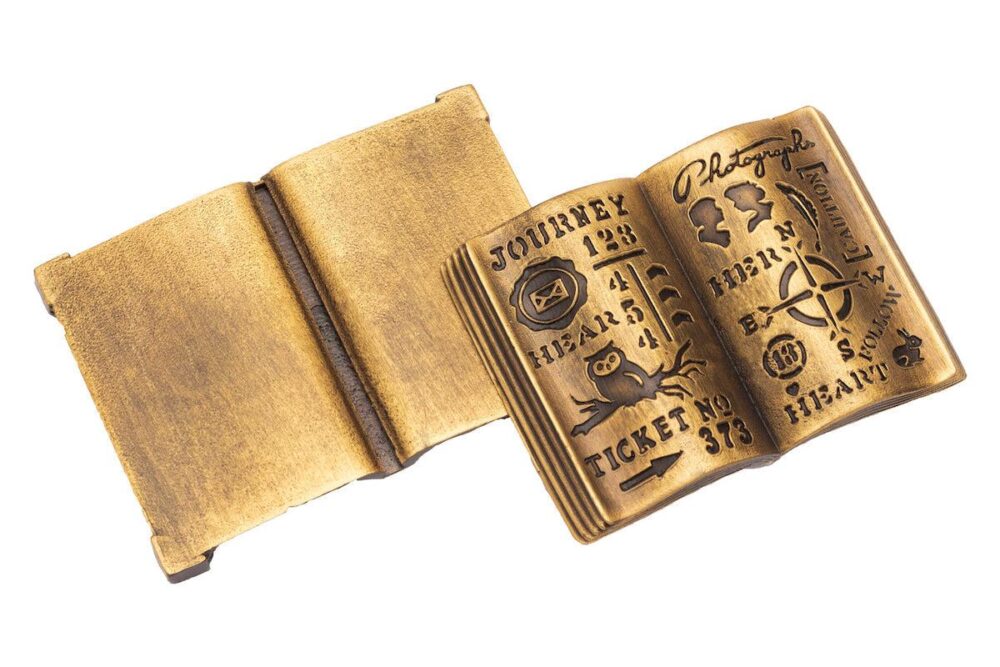 JOURNEY
123
4
HEAR 5
4
TICKET NO
373
Photographs
[CAUTION]
HER
N
W
E
S
FOLLOW
13
HEART